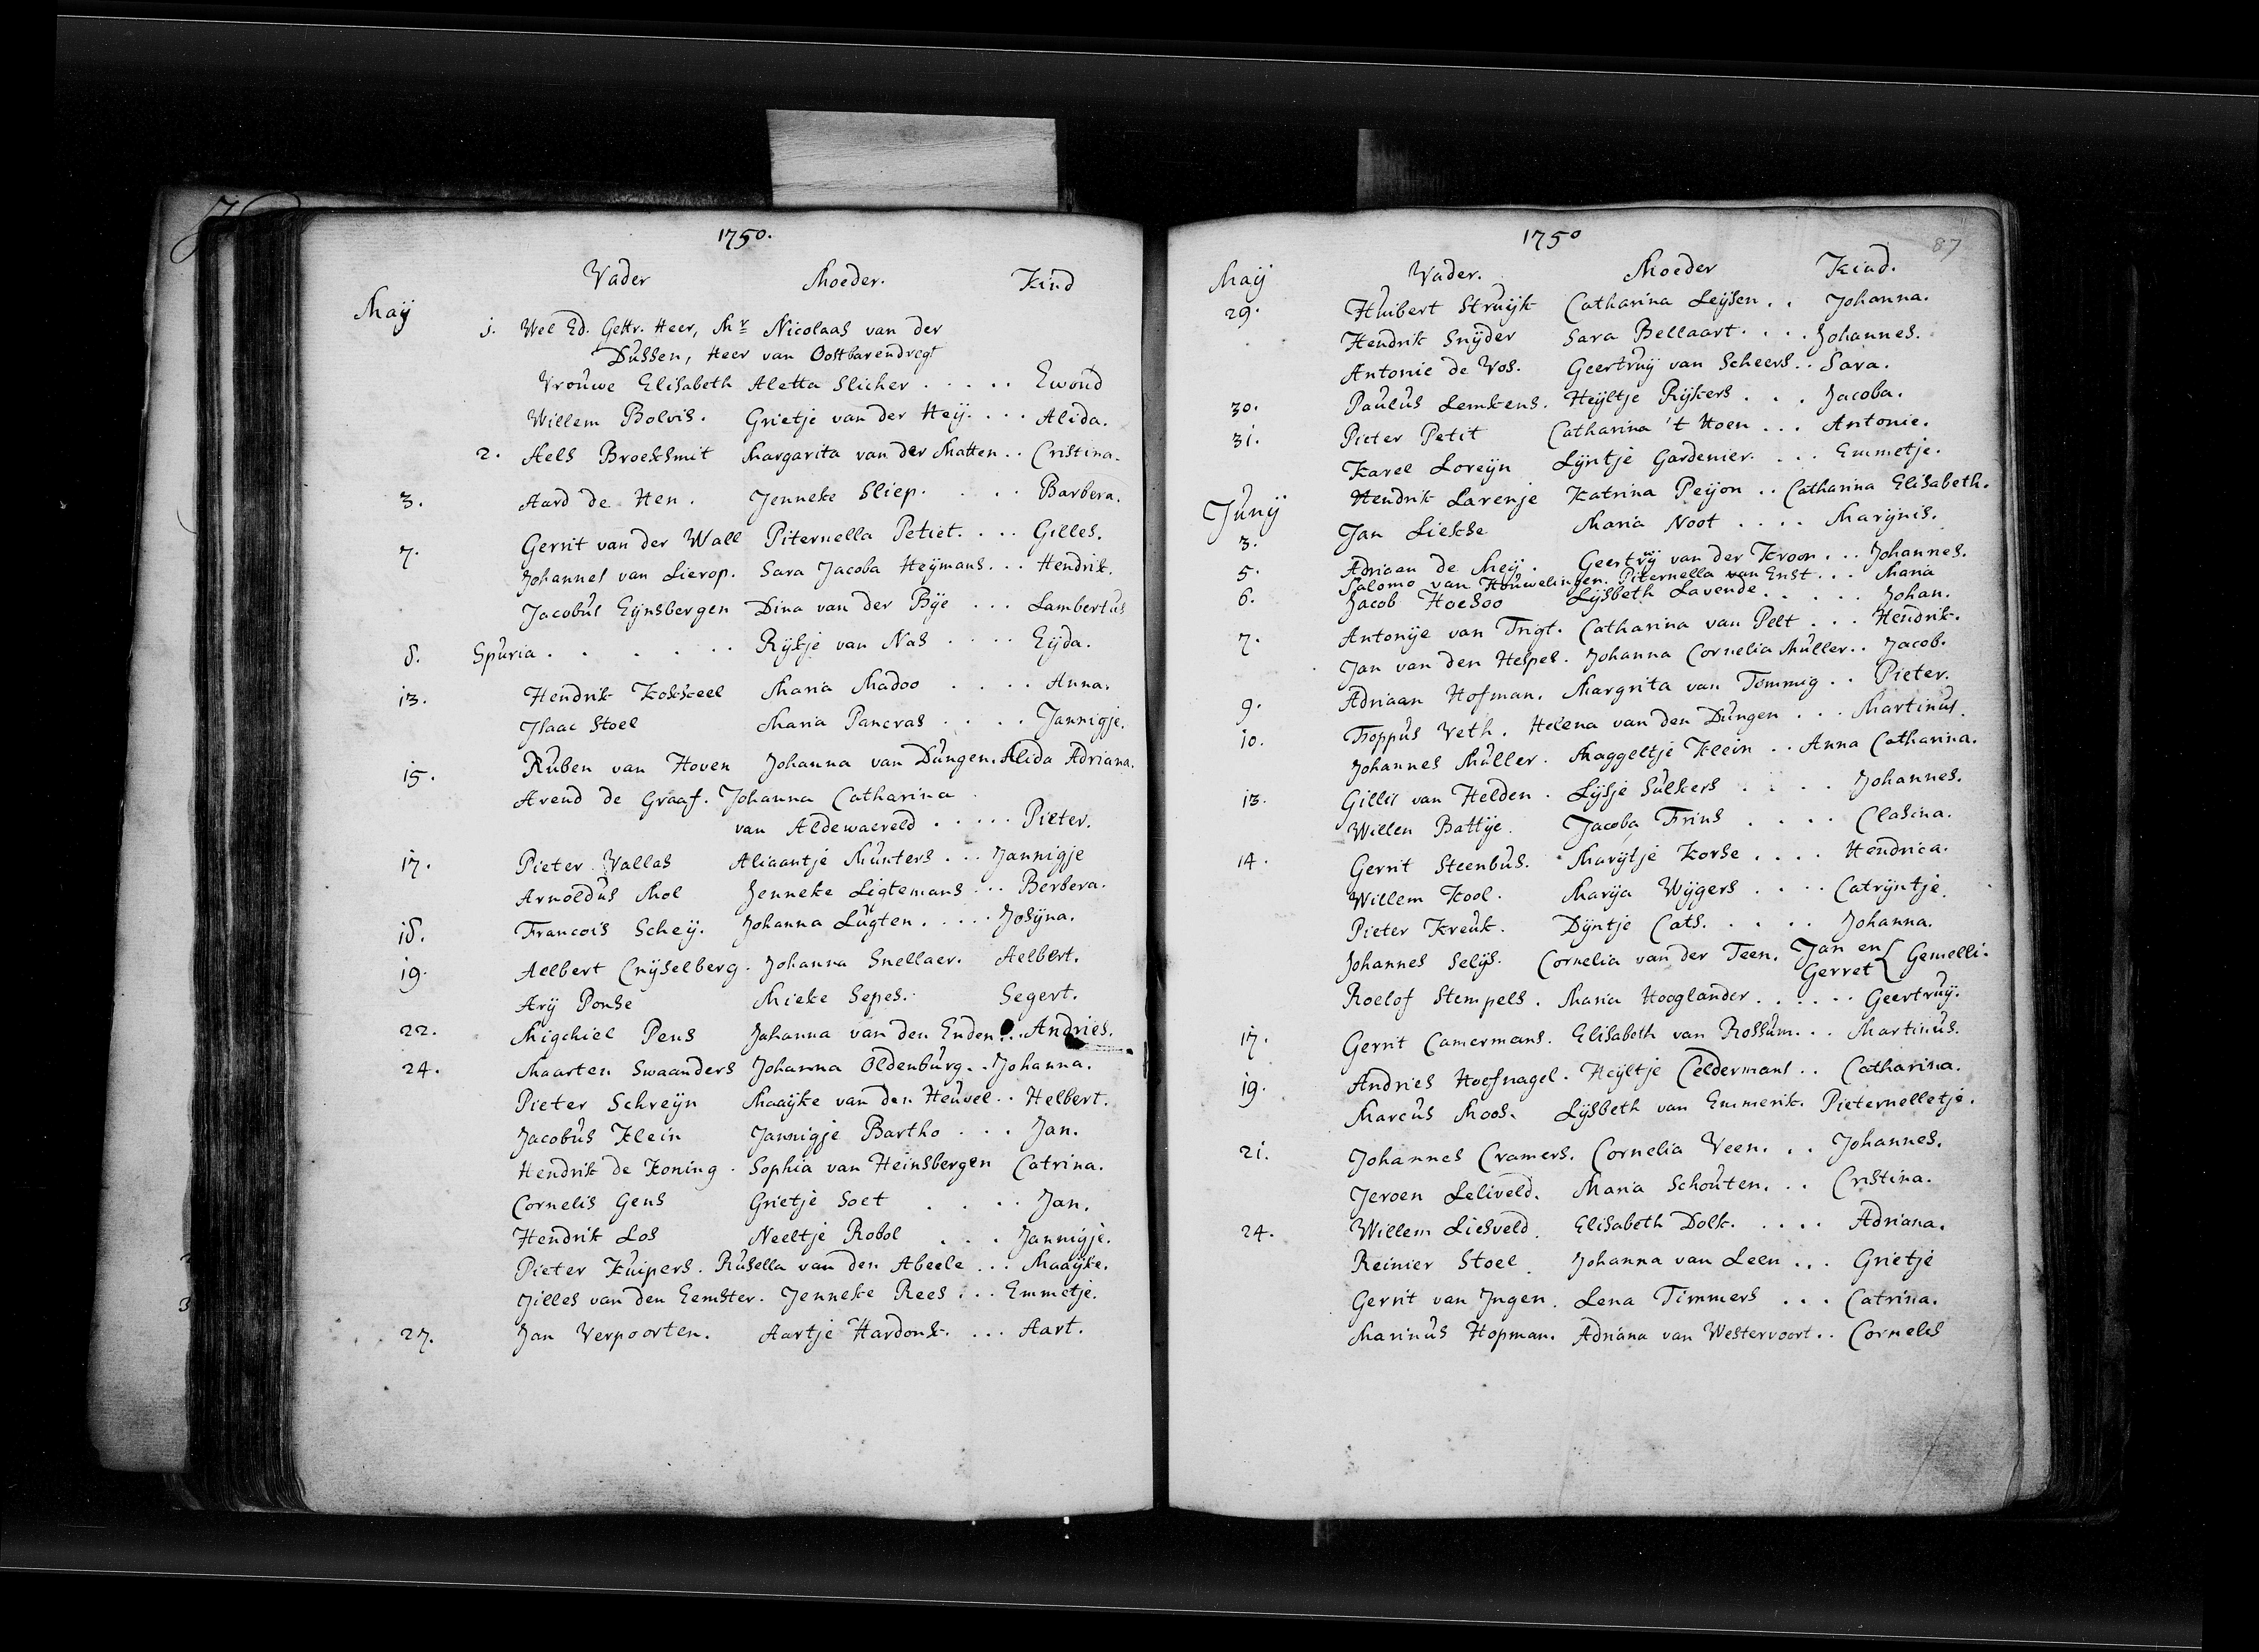 1750.
Vader Moeder. Kind
Maÿ 1. Wel Ed. Gestr. Heer, Mr Nicolaas van der
Dussen, Heer van Oostbarendregt
Vrouwe Elisabeth Aletta Slicher ..... Ewoud
Willem Bolvis. Grietje van der Heÿ.... Alida.
2. Hels Broeksmit Margarita van der Matten.. Cristina.
3. Aard de Hen. Jenneke Sliep. .... Barbera.
7. Gerrit van der Wall Piternella Petiet.... Gilles.
Johannes van Lierop. Sara Jacoba Heÿmans... Hendrik.
Jacobus Eÿnsbergen Dina van der Bÿe ... Lambertus
8. Spuria....... Rÿkje van Nas .... Eÿda.
13. Hendrik Kokkeel Maria Madoo .... Anna.
Isaac Stoel Maria Pancras .... Jannigje.
15. Ruben van Hoven Johanna van Dungen. Alida Adriana.
Arend de Graaf. Johanna Catharina
van Aldewaereld ..... Pieter.
17. Pieter Vallas Aliaantje Munters... Jannigje
Arnoldus Mol Jenneke Ligtemans... Berbera.
18. Francois Scheÿ. Johanna Lugten..... Josÿna.
19. Aelbert Crÿselberg. Johanna Snellaer. Aelbert.
Arÿ Ponse Mieke Sepes. Segert.
22. Migchiel Pens Johanna van den Enden... Andries.
24. Maarten Swaanders Johanna Oldenburg.. Johanna.
Pieter Schreÿn Maaÿke van den Heuvel.. Helbert.
Jacobus Klein Jannigje Bartho ... Jan.
Hendrik de Koning. Sophia van Heinsbergen Catrina.
Cornelis Gens Grietje Soet .... Jan.
Hendrik Los Neeltje Robol ... Jannigje.
Pieter Kuipers. Rusella van den Abeele... Maaÿke.
Jilles van den Eemster. Jenneke Rees... Emmetje.
27. Jan Verpoorten. Aartje Hardonk.... Aart.
1750
87
Maÿ Vader. Moeder Kind.
29. Huibert Struÿk Catharina Leÿsen.. Johanna.
Hendrik Snÿder Sara Bellaart.... Johannes.
Antonie de Vos. Geertruÿ van Scheers.. Sara.
30. Paulus Lemkens. Heÿltje Rÿkers... Jacoba.
31. Pieter Petit Catharina 't Hoen... Antonie.
Karel Loreÿn Lÿntje Gardenier.... Emmetje.
Hendrik Larenje Katrina Peÿon.. Catharina Elisabeth.
Junÿ
3. Jan Liekse Maria Noot .... Marÿnis.
5. Adriaan de Meÿ. Geertruÿ van der Kroon... Johannes.
Salomo van Houwelingen. Piternella van Enst... Maria
6. Jacob Hoesoo Lÿsbeth Lavende..... Johan.
7. Antonÿe van Trigt. Catharina van Pelt... Hendrik.
Jan van den Helpes. Johanna Cornelia Muller.. Jacob.
9. Adriaan Hofman. Margrita van Temmig.. Pieter.
10. Foppus Veth. Helena van den Dungen... Martinus.
Johannes Muller. Maggeltje Klein.. Anna Catharina.
13. Gillis van Helden. Lÿsje Sulkers .... Johannes.
Willem Battÿe. Jacoba Frins .... Clasina.
14. Gerrit Steenbus. Marÿtje Korse.... Hendrica.
Willem Kool. Marÿa Wÿgers .... Catrÿntje.
Pieter Kreuk. Dÿntje Cats..... Johanna.
Johannes Selÿs. Cornelia van der Teen. Jan en
Gerret { Gemelli.
Roelof Stempels. Maria Hooglander...... Geertruÿ.
17. Gerrit Camermans. Elisabeth van Rossum... Martinus.
19. Andries Hoefnagel. Heÿltje Celdermans.. Catharina.
Marcus Moos. Lÿsbeth van Emmerik. Pieternelletje.
21. Johannes Cramers. Cornelia Veen... Johannes.
Jeroen Leliveld. Maria Schouten... Cristina.
24. Willem Liesveld. Elisabeth Dolk..... Adriana.
Reinier Stoel. Johanna van Leen... Grietje
Gerrit van Ingen. Lena Timmers ... Catrina.
Marinus Hopman. Adriana van Westervoort.. Cornelis